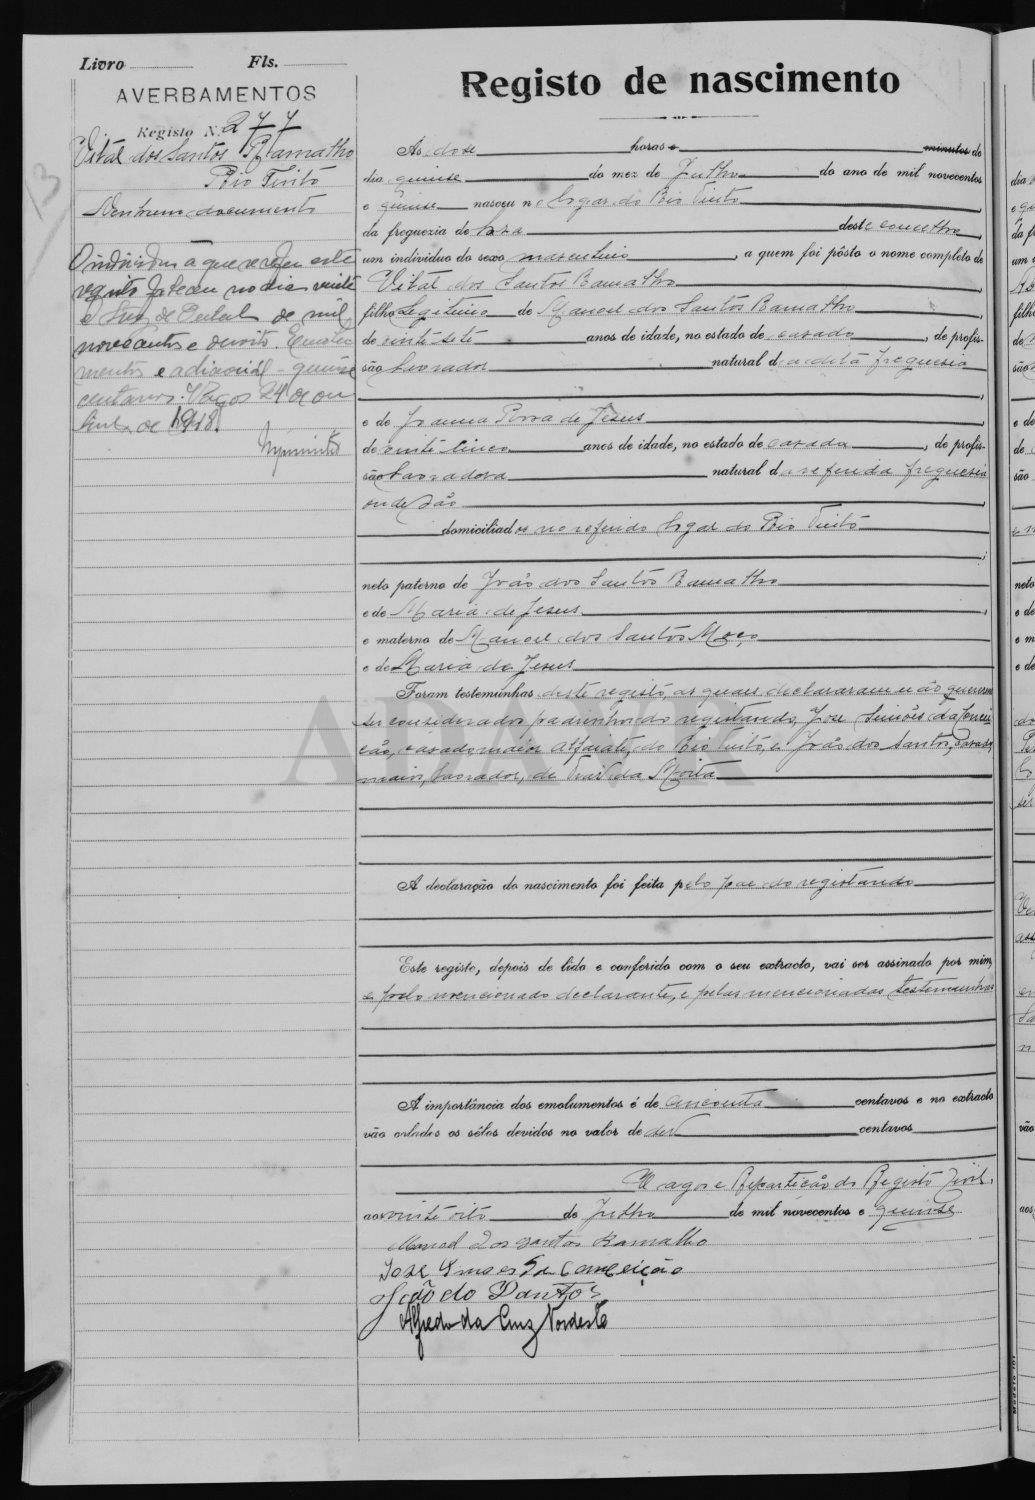 Livro Fls.
AVERBAMENTOS
Registo N.º 277
Vital dos Santos Ramalho
Rio Tinto
Nenhum documento
O individuo a que se refere este
registo faleceu no dia vinte
e tres de Outubro de mil
novecentos e dezoito. Emolu
mentos e adicional - quinse
centavos. Vagos 24 de Ou
tubro de 1918.
13
Registo de nascimento
Ás dose horas e minutos do
dia quinse do mez de Julho do ano de mil novecentos
e quinse nasceu no logar do Rio Tinto,
da freguezia de Soza deste concelho,
um individuo do sexo masculino, a quem foi pôsto o nome completo de
Vital dos Santos Ramalho,
filho Legitimo de Manoel dos Santos Ramalho,
de vinte sete anos de idade, no estado de casado, de profis-
são lavrador natural da dita freguesia
e de Joanna Rosa de Jesus,
de vinte cinco anos de idade, no estado de casada, de profis-
são lavradora natural da referida freguesia
onde são
domiciliados no referido logar do Rio Tinto
neto paterno de João dos Santos Ramalho
e de Maria de Jesus,
e materno de Manoel dos Santos Moço
e de Maria de Jesus
Foram testemunhas deste registo, as quaes declararam não quererem
ser considerados padrinhos do registando, Jose Simões da Concei
ção, casado, maior, alfaiate, do Rio Tinto, e João dos Santos, casado,
maior, lavrador, de
ADAVR
A declaração do nascimento foi feita pelo pae do registando
Este registo, depois de lido e conferido com o seu extracto, vai ser assinado por mim,
e pelo mencionado declarante, e pelas mencionadas testemunhas
A importância dos emolumentos é de cincoenta centavos e no extracto
vão colados os sêlos devidos no valor de dez centavos
Vagos e Repartição do Registo Civil,
aos vinte oito de Julho de mil novecentos e quinse
Manoel dos Santos Ramalho
Jose Simoes da Conceição
João do Santos
Alfredo da Cruz Nordeste